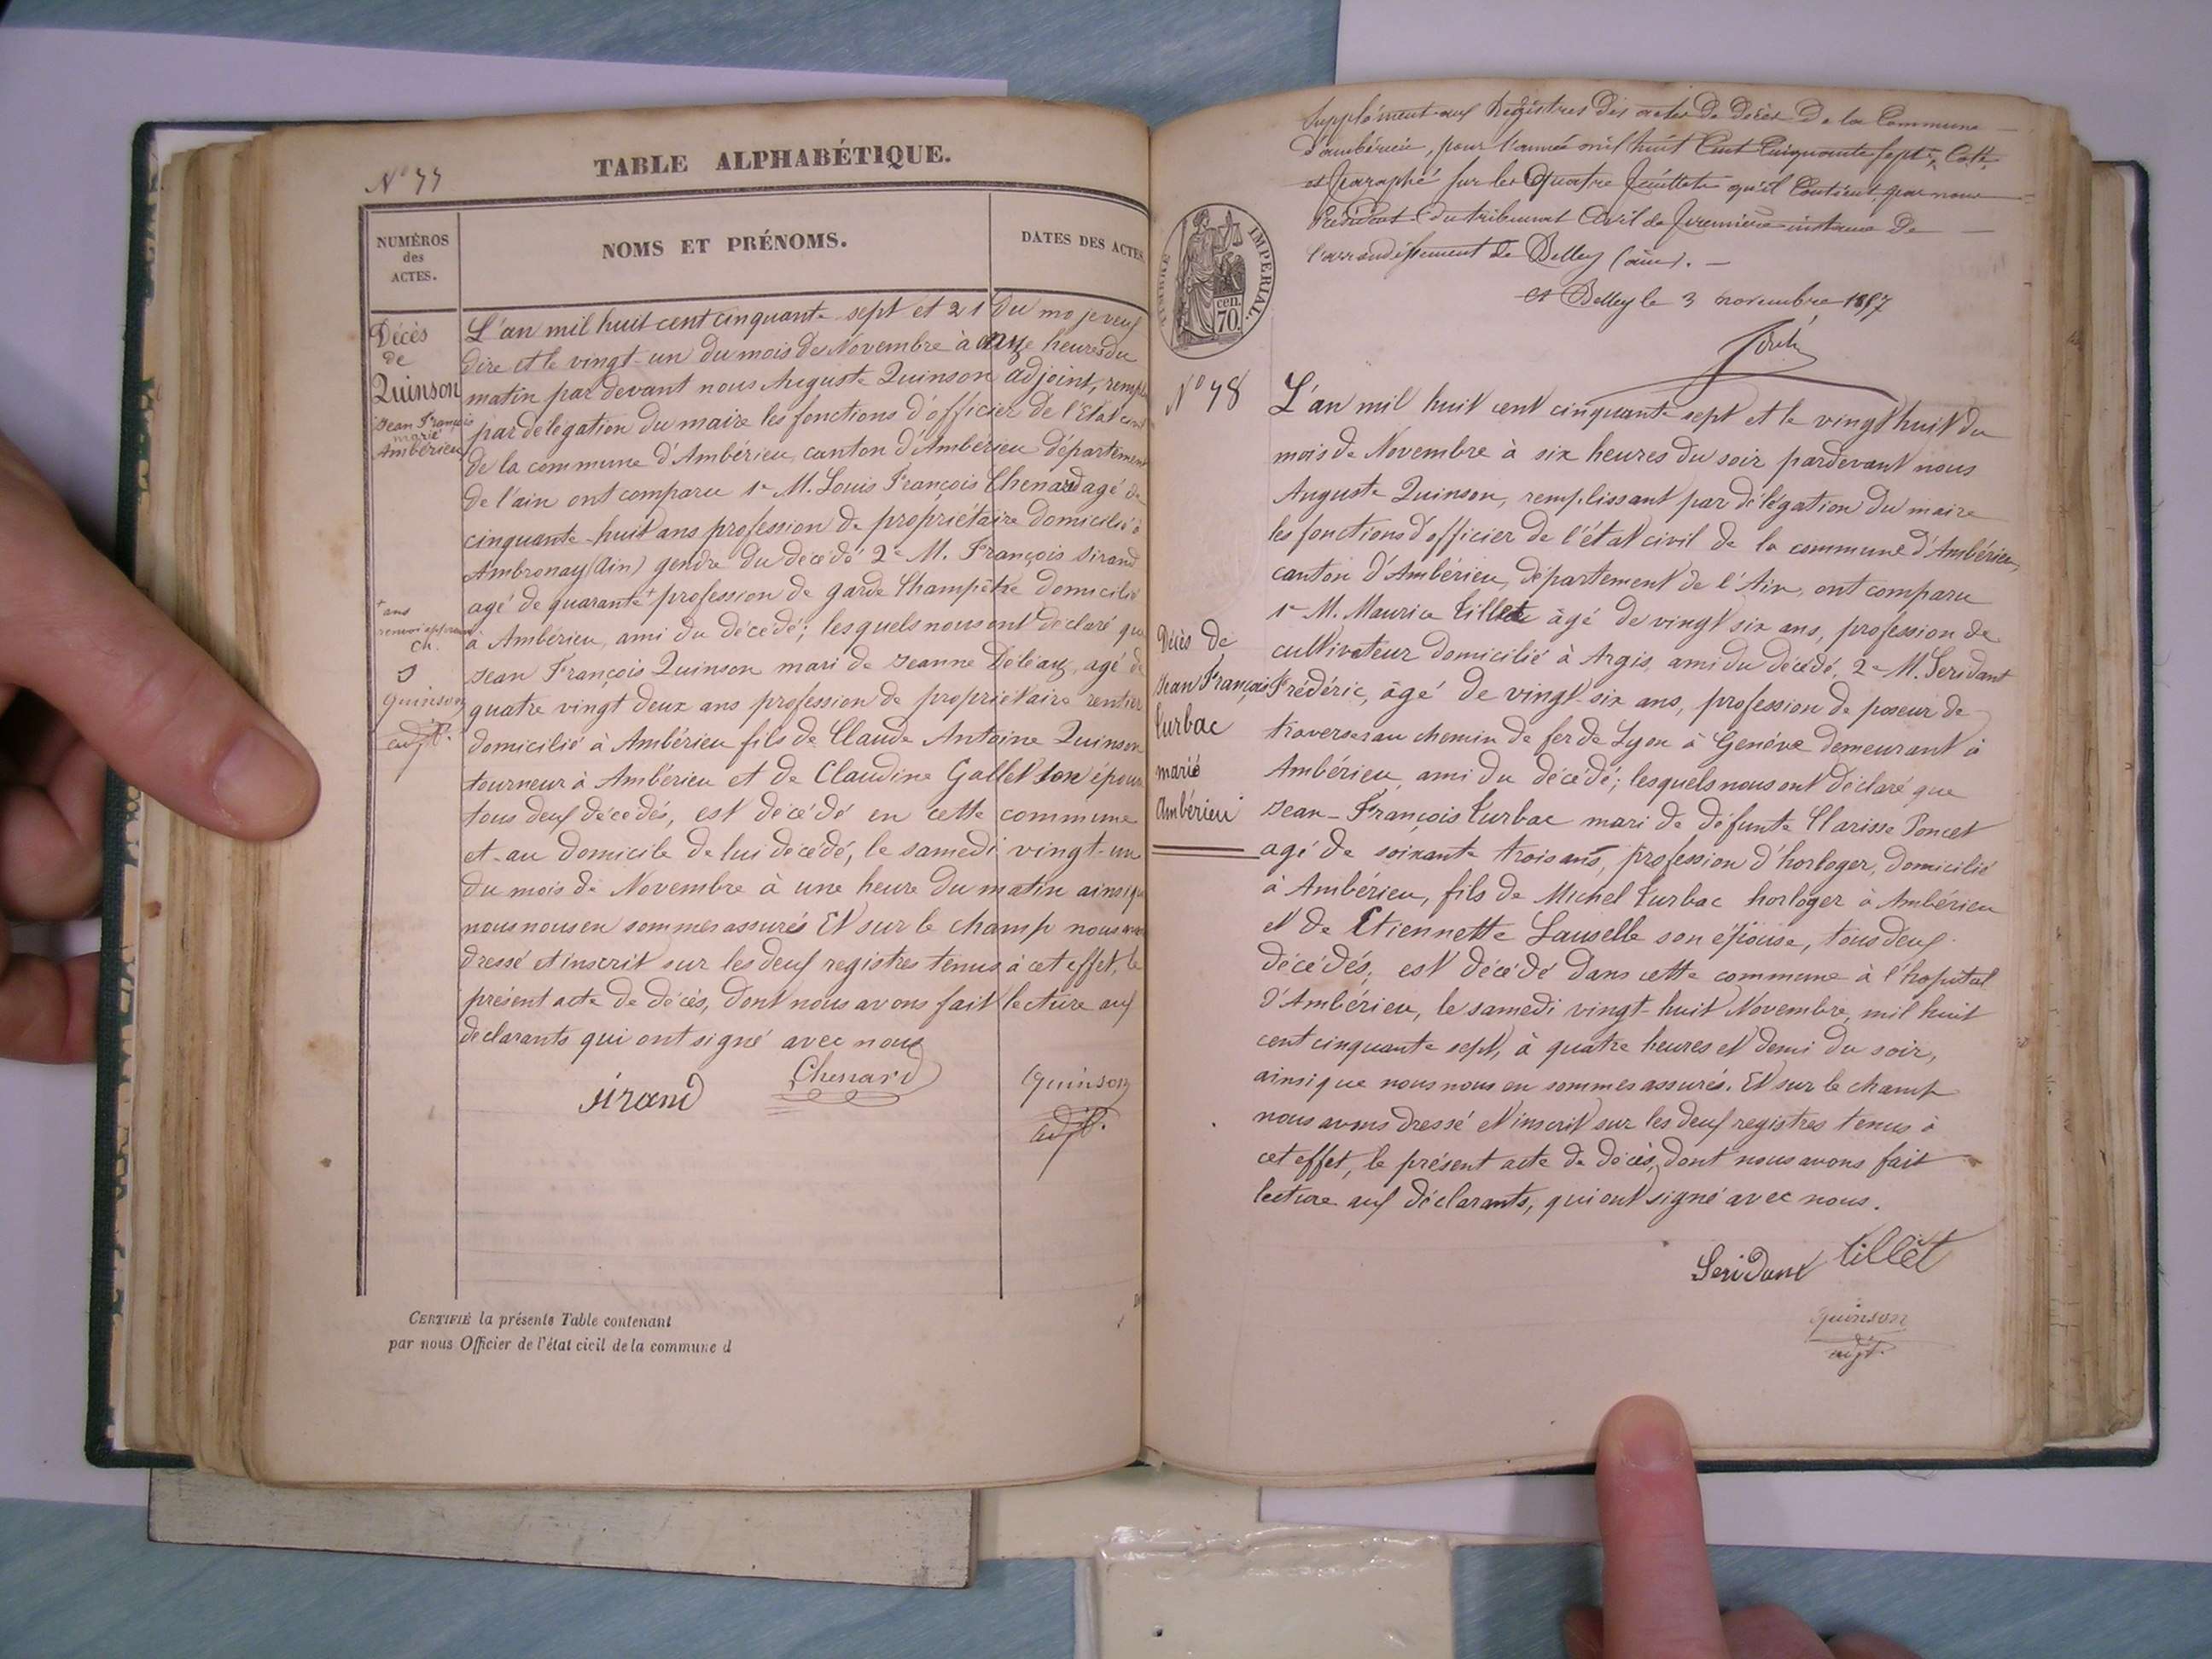 N° 77
TABLE ALPHABÉTIQUE.
NUMÉROS
des
ACTES.
NOMS ET PRÉNOMS.
DATES DES ACTES
Décès
de
Quinson
Jean François
marié
Ambérieu
+ ans
renvoi approuvé
Ch.
S
Quinson
adjt.
L'an mil huit cent cinquante-sept et 21 du mo je veux
dire et le vingt-un du mois de Novembre à onze heures du
matin par devant nous Auguste Quinson adjoint, rempli
par délégation du maire les fonctions d'officier de l'Etat civil
de la commune d'Ambérieu, canton d'Ambérieu département
de l'ain ont comparu 1° M. Louis François Chenard agé de
cinquante-huit ans profession de propriétaire domicilié à
Ambronay (Ain) gendre du décédé 2° M. François Sirand
agé de quarante + profession de garde Champêtre domicilié
à Ambérieu, ami du décédé; lesquels nous ont déclaré que
Jean François Quinson mari de Jeanne Déléaz, agé de
quatre vingt deux ans profession de propriétaire rentier
domicilié à Ambérieu fils de Claude Antoine Quinson
tourneur à Ambérieu et de Claudine Gallet son épouse
tous deux décédés, est décédé en cette commune
et au domicile de lui décédé, le samedi vingt-un
du mois de Novembre à une heure du matin ainsi que
nous nous en sommes assurés Et sur le champ nous avons
dressé et inscrit sur les deux registres tenus à cet effet, le
présent acte de décès, dont nous avons fait lecture aux
déclarants qui ont signé avec nous
Sirand Chenard Quinson
adjt.
CERTIFIÉ la présente Table contenant
par nous Officier de l'état civil de la commune d
Supplément aux Registres des actes de décès de la Commune
d'ambérieu, pour l'année mil huit Cent Cinquante sept, Coté
et Paraphé sur les Quatre feuillets qu'il Contient, par nous
Président du tribunal Civil de première instance de
l'arrondissement de Belley (ain).
à Belley le 3 novembre 1857
TIMBRE IMPERIAL.
70 cen.
N° 78
Décès de
Jean François
Curbac
marié
Ambérieu
L'an mil huit cent cinquante sept et le vingt huit du
mois de Novembre à six heures du soir pardevant nous
Auguste Quinson, remplissant par délégation du maire
les fonctions d'officier de l'état civil de la commune d'Ambérieu,
canton d'Ambérieu, département de l'Ain, ont comparu
1° M. Maurice Tillet âgé de vingt six ans, profession de
cultivateur domicilié à Argis, ami du décédé, 2° M. Seridant
Frédéric, âgé de vingt-six ans, profession de poseur de
traverses au chemin de fer de Lyon à Genève demeurant à
Ambérieu, ami du décédé; lesquels nous ont déclaré que
Jean-François Curbac mari de défunte Clarisse Poncet
agé de soixante trois ans, profession d'horloger, domicilié
à Ambérieu, fils de Michel Curbac horloger à Ambérieu
et de Etiennette Lauselle son épouse, tous deux
décédés, est décédé dans cette commune à l'hopital
d'Ambérieu, le samedi vingt-huit Novembre, mil huit
cent cinquante sept, à quatre heures et demi du soir,
ainsi que nous nous en sommes assurés. Et sur le champ
nous avons dressé et inscrit sur les deux registres tenus à
cet effet, le présent acte de décès, dont nous avons fait
lecture aux déclarants, qui ont signé avec nous.
Seridant Tillet
Quinson
adjt.